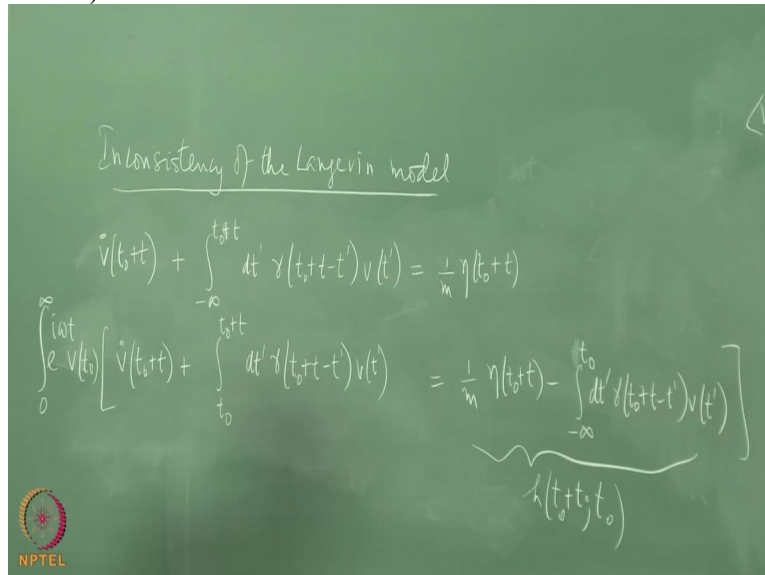 Inconsistency of the Langevin model
v̇(t₀+t) + ∫_{-∞}^{t₀+t} dt' γ(t₀+t-t') v(t') = 1/m η(t₀+t)
∫_0^∞ e^{iωt} v(t₀) [ v̇(t₀+t) + ∫_{t₀}^{t₀+t} dt' γ(t₀+t-t') v(t') = 1/m η(t₀+t) - ∫_{-∞}^{t₀} dt' γ(t₀+t-t') v(t') ]
h(t₀+t; t₀)
NPTEL